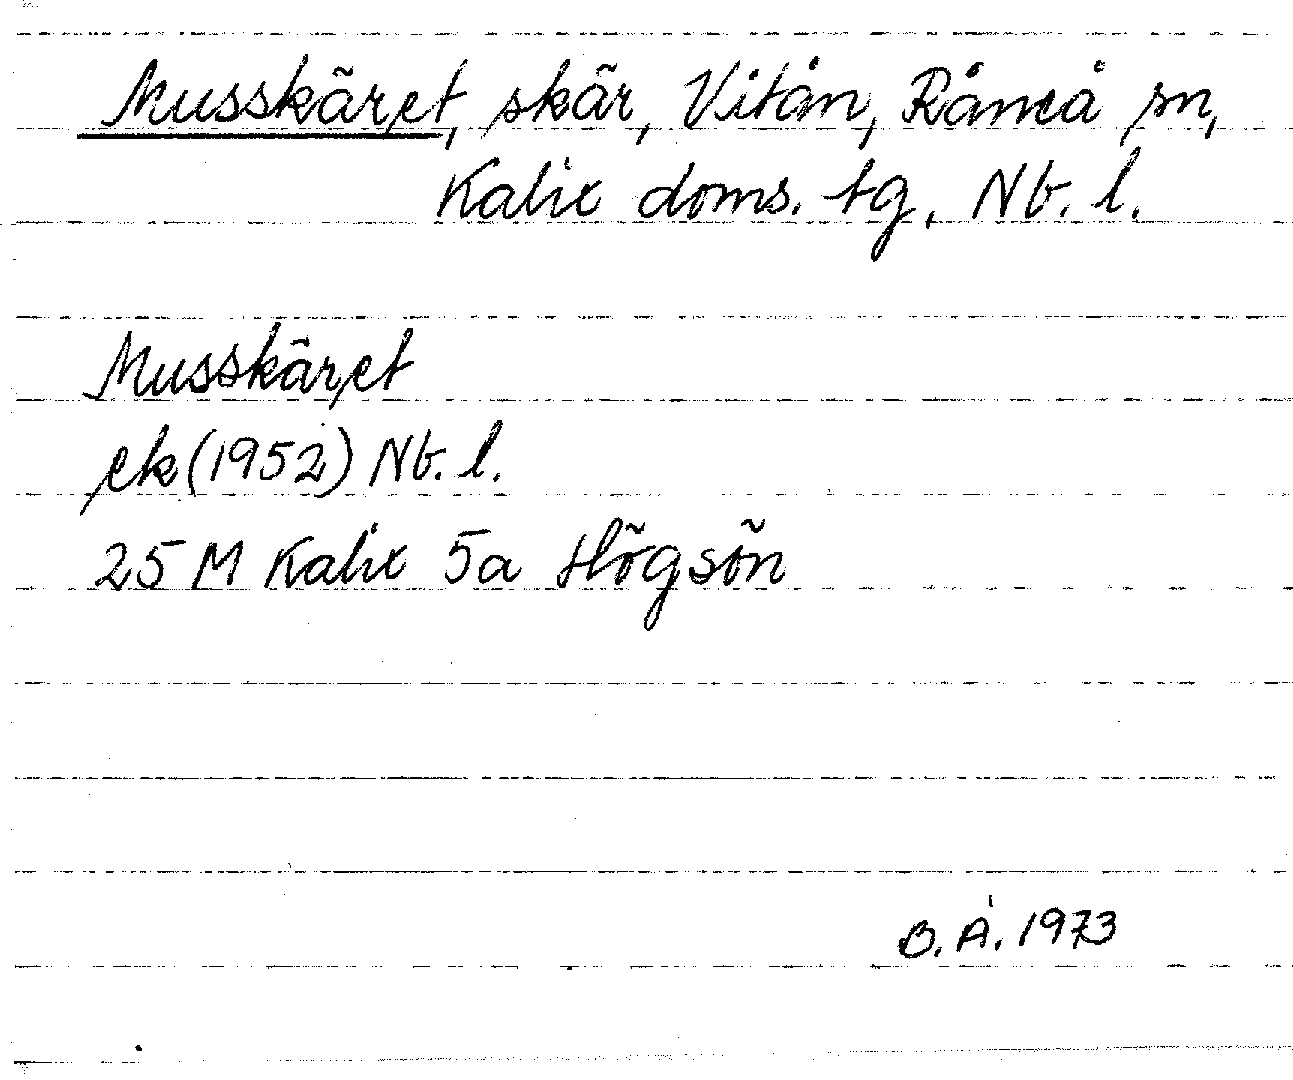 Musskäret, skär, Vitån, Råneå sn,
Kalix doms. tg, Nb. l.
Musskäret
ek (1952) Nb. l.
25 M Kalix 5a Högsön
B. Å. 1973